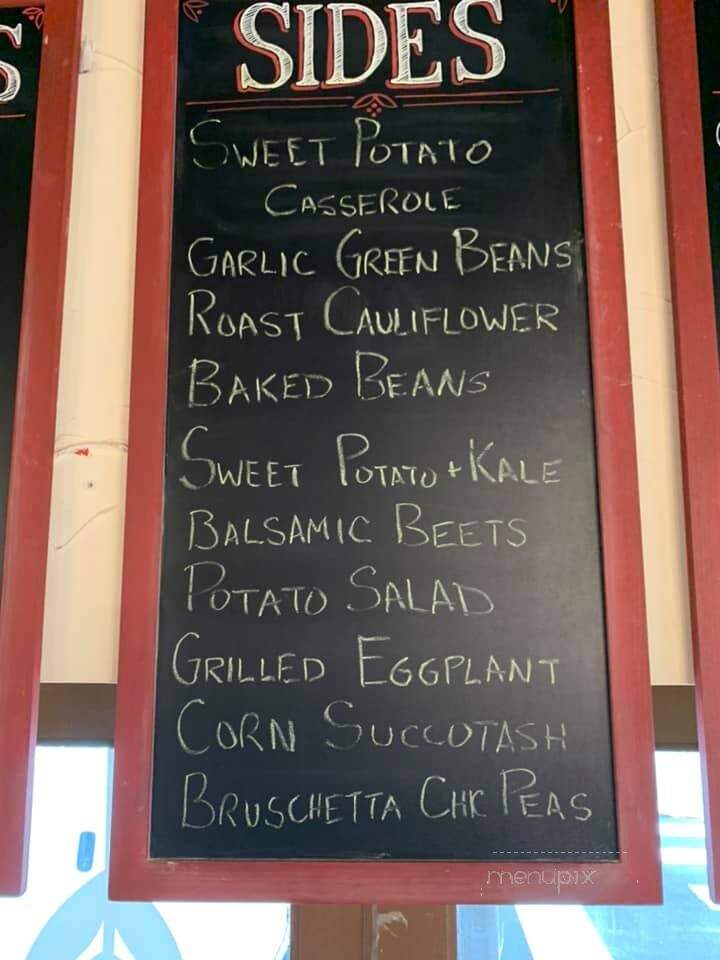 S
SIDES
SWEET POTATO
CASSEROLE
GARLIC GREEN BEANS
ROAST CAULIFLOWER
BAKED BEANS
SWEET POTATO + KALE
BALSAMIC BEETS
POTATO SALAD
GRILLED EGGPLANT
CORN SUCCOTASH
BRUSCHETTA CHK PEAS
menupix